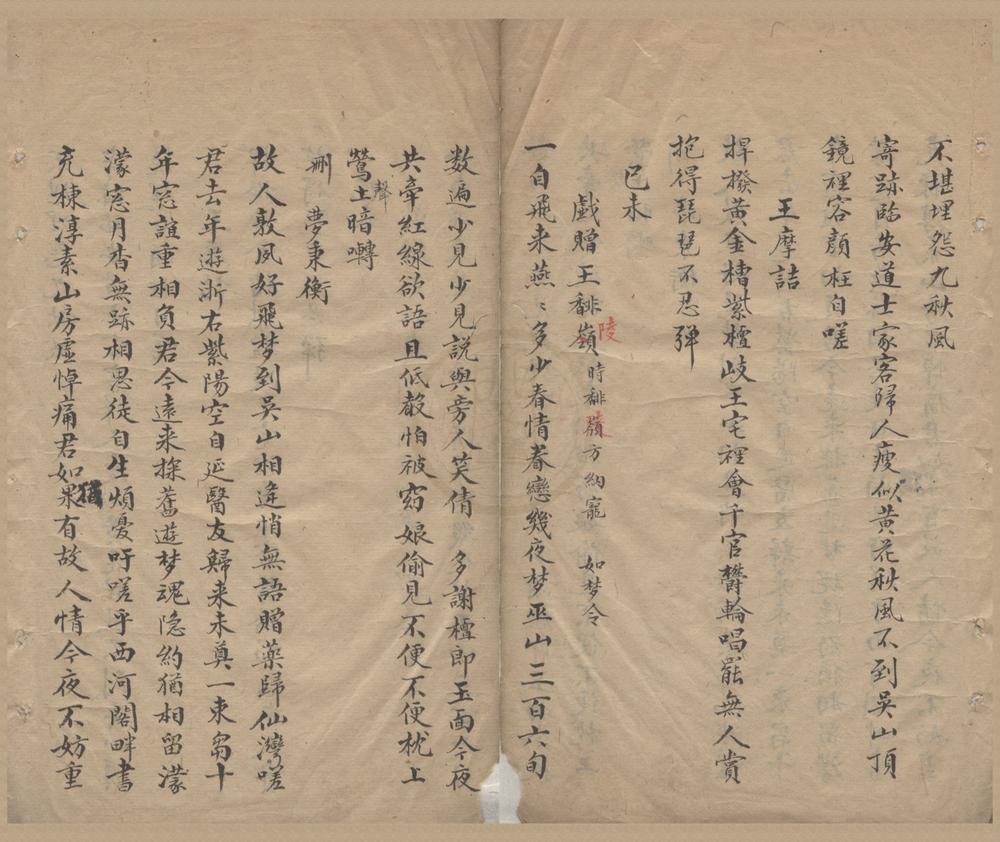 不堪埋怨九秋風
寄跡臨安道士家客歸人瘦似黃花秋風不到吳山頂
鏡裡容顏枉自嗟
王摩詰
捍撥黃金槽紫檀岐王宅裡會千官欝輪唱罷無人賞
抱得琵琶不忍彈
已未
戲贈王馡嶺陵時馡嶺方納寵 如梦令
一自飛来燕〻多少春情眷戀幾夜梦巫山三百六旬
数遍少見少見説與旁人笑倩 多謝檀郎玉面今夜
共牽紅線欲語且低聲怕被窈娘偷見不便不便枕上
鶯聲土暗囀
刪 夢秉衡
故人敦夙好飛梦到吳山相逢悄無語贈藥歸仙灣嗟
君去年遊浙右紫陽空自延醫友歸来未奠一束芻十
年窓誼重相負君今遠来探舊遊梦魂隐約猶相留濛
濛窓月杳無跡相思徒自生煩憂吁嗟乎西河閣畔書
充棟淳素山房虛悼痛君如果猶有故人情今夜不妨重